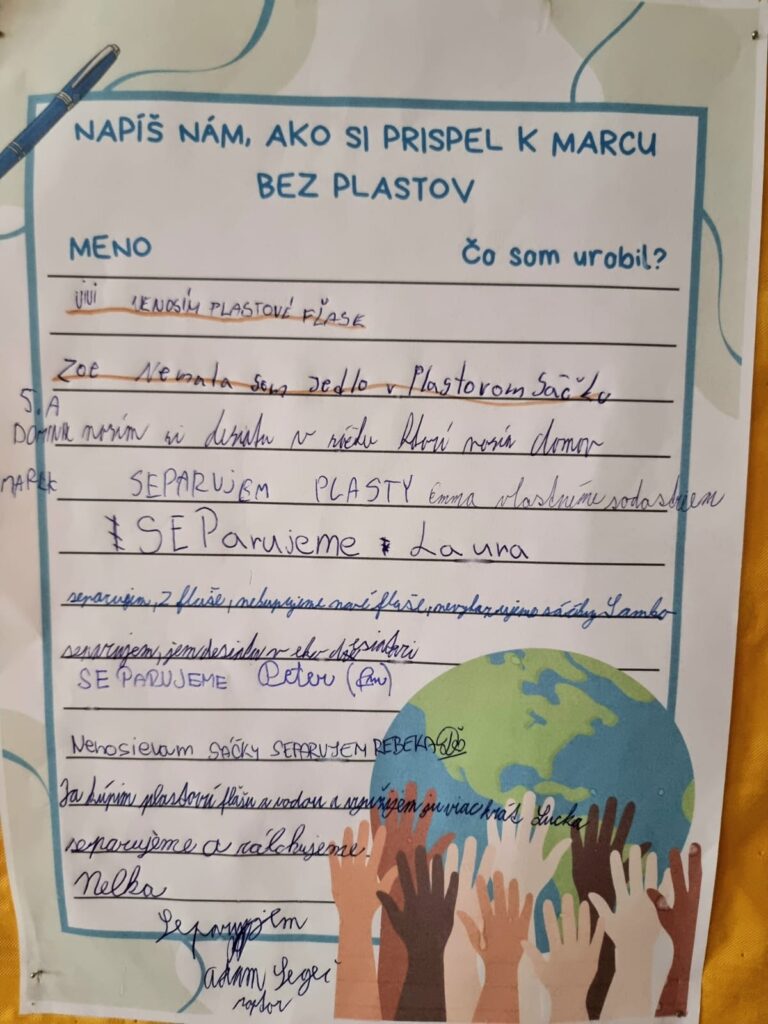 NAPÍŠ NÁM, AKO SI PRISPEL K MARCU
BEZ PLASTOV
MENO Čo som urobil?
ViVi NENOSÍM PLASTOVÉ FĽAŠE
Zoe Nemala som Jedlo v Plastovom Sáčku
S.A
DOMINIK nosím si desiatu v sáčku ktorí nosím domov
MAREK SEPARUJEM PLASTY Emma vlastníme sodastream
SEParujeme Laura
separujem, Z fľaše, nekupujeme nové fľaše, nevyhazujeme sáčky Sambo
separujem, jem desiatu v eko
SEPARUJEME Peter
Nenosievam SÁČKY SEPARUJEM REBEKA
Ja kúpim plastovú flašu s vodou a využijem ju viac krát Lucka
separujeme a zálohujeme
Nelka
Separujem
ADAM